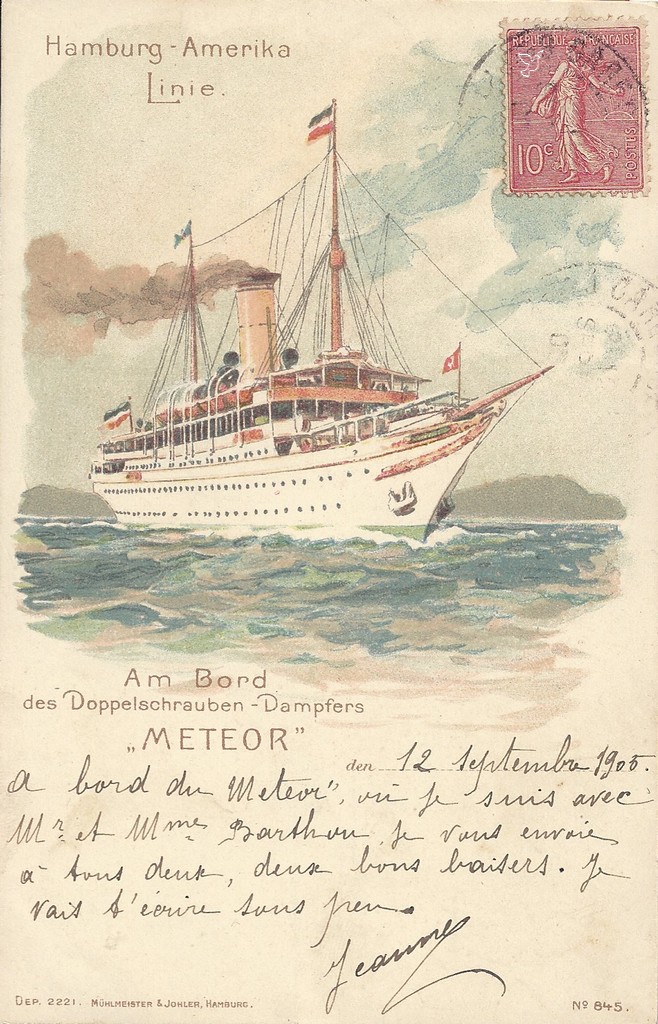 Hamburg-Amerika
Linie.
REPUBLIQUE FRANÇAISE
10c
POSTES
Am Bord
des Doppelschrauben-Dampfers
„METEOR”
den 12 septembre 1905.
a bord du Meteor", où je suis avec
Mr. et Mme Barthou, je vous envoie
à tous deux, deux bons baisers. Je
vais t'écrire sous peu.
Jeanne
DEP. 2221. MÜHLMEISTER & JOHLER, HAMBURG.
No 845.